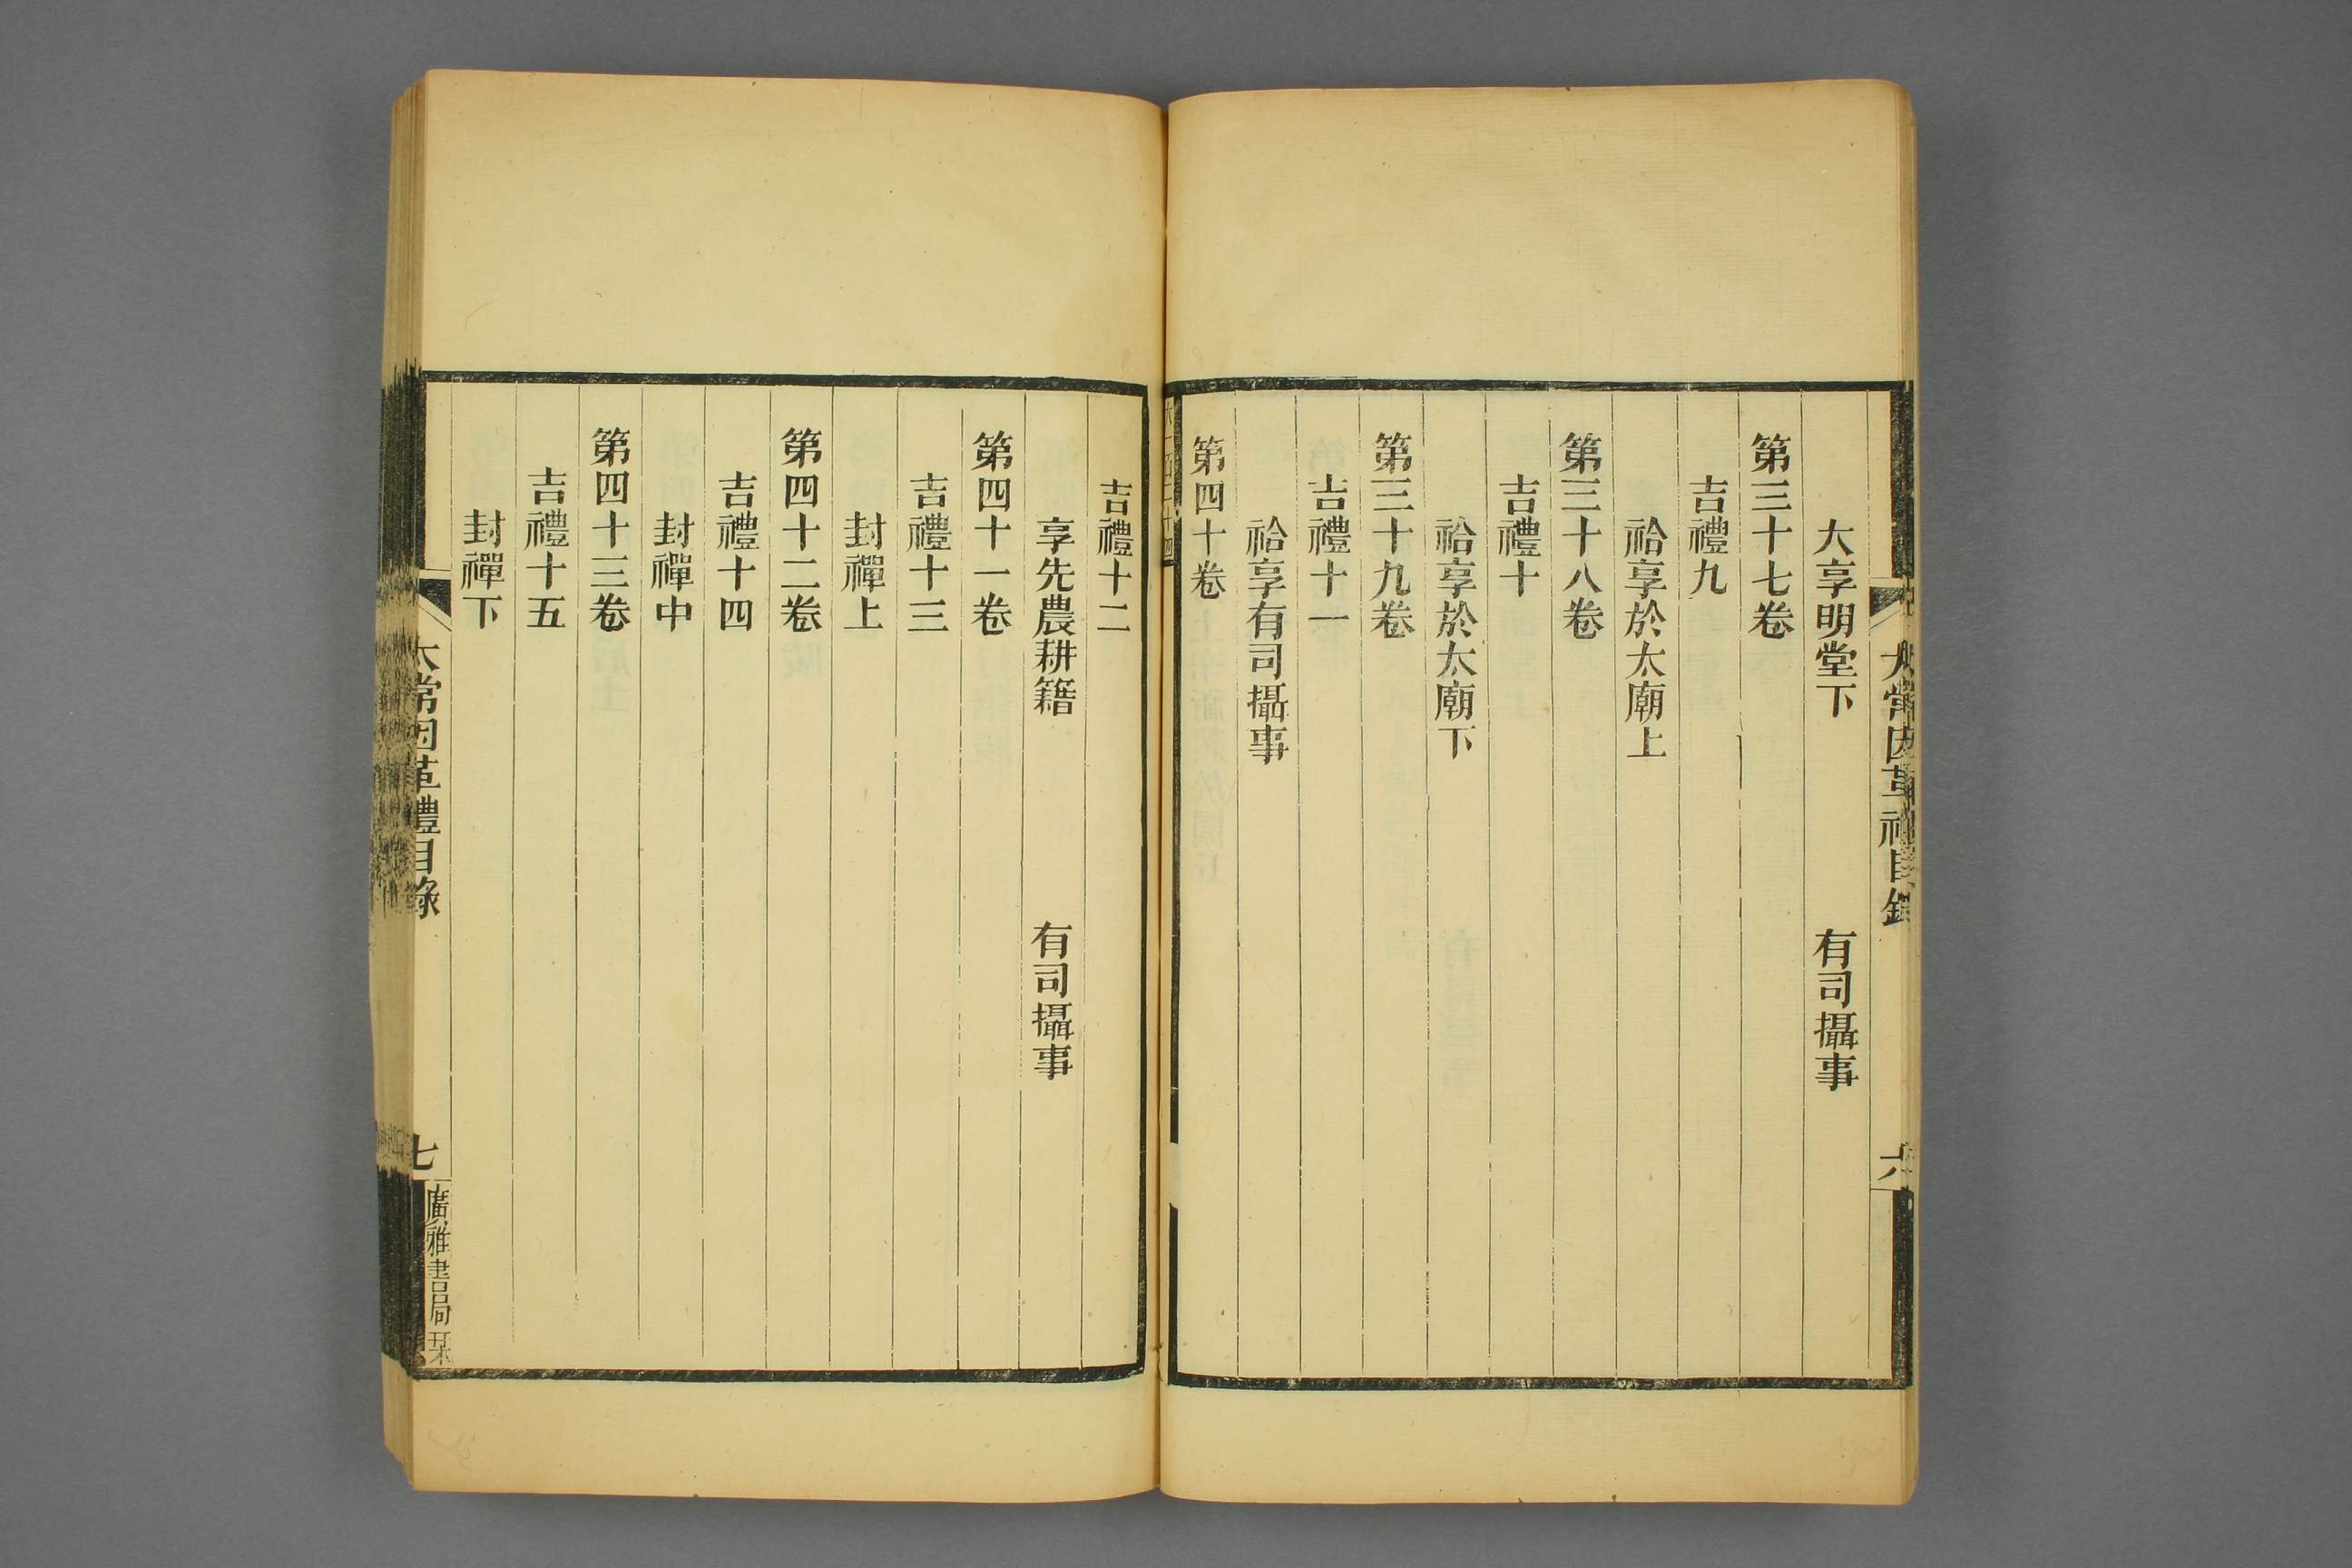 太常因革禮目錄
六
大享明堂下 有司攝事
第三十七卷
吉禮九
祫享於太廟上
第三十八卷
吉禮十
祫享於太廟下
第三十九卷
吉禮十一
祫享有司攝事
第四十卷
吉禮十二
享先農耕籍 有司攝事
第四十一卷
吉禮十三
封禪上
第四十二卷
吉禮十四
封禪中
第四十三卷
吉禮十五
封禪下
太常因革禮目錄
七
廣雅書局栞